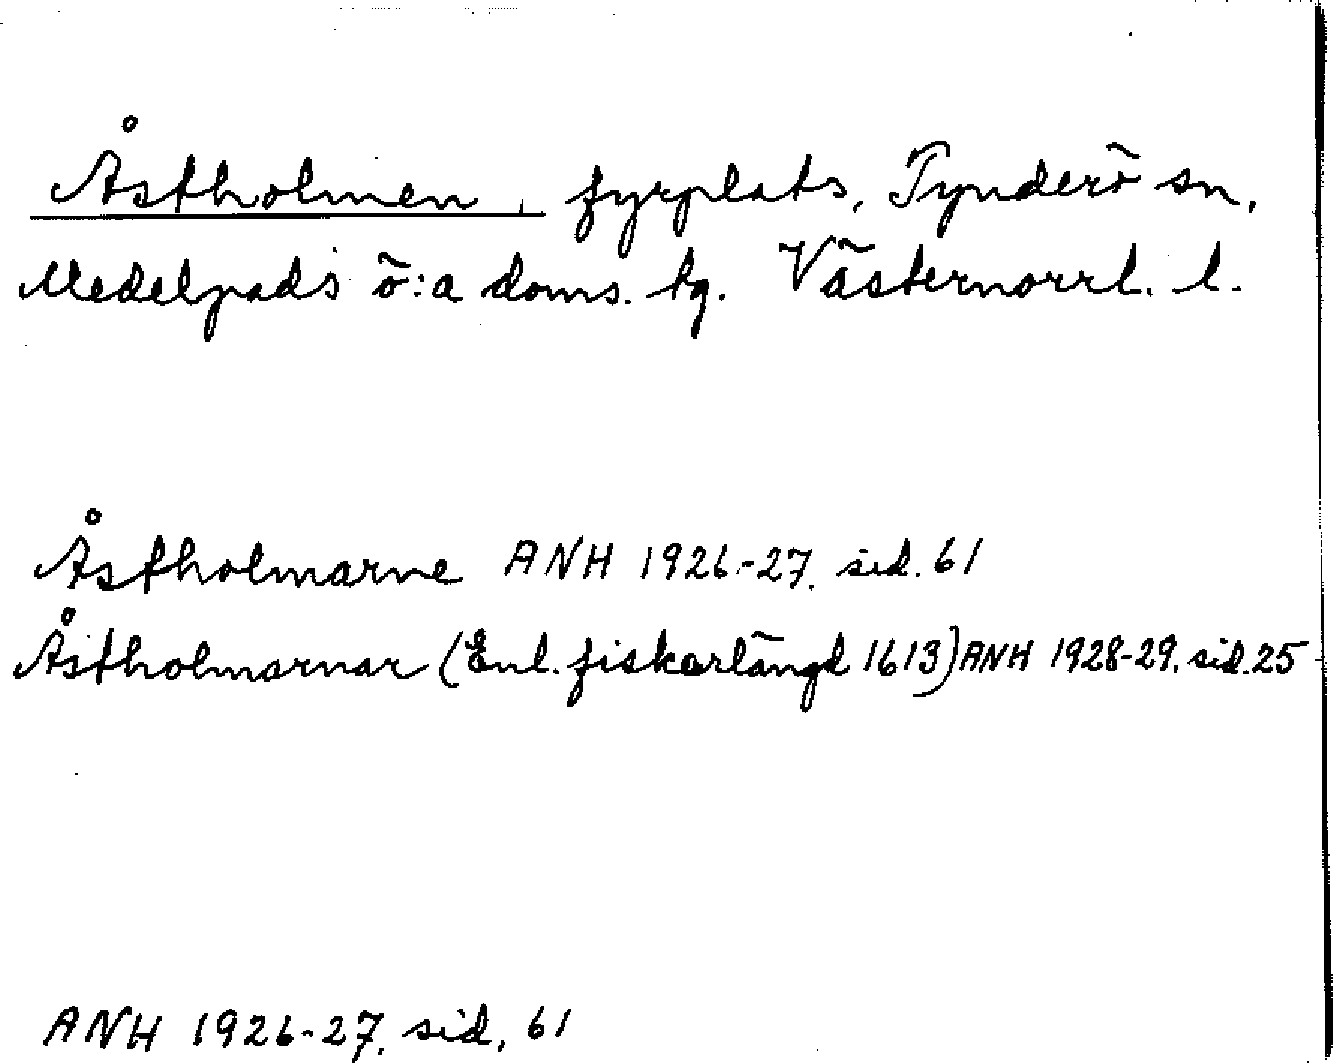 Åstholmen, fyrplats, Tynderö sn,
Medelpads ö:a doms. tg. Västernorrl. l.
Åstholmarne ANH 1926-27, sid. 61
Åstholmarnar (Enl. fiskarlängd 1613) ANH 1928-29, sid. 25
ANH 1926-27, sid, 61